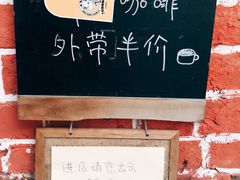 咖啡
外带半价
进店请您出示